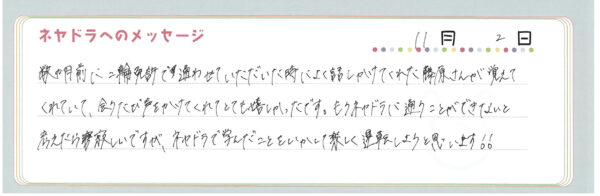 ネヤドラへのメッセージ
11月 2日
数ヶ月前に二輪免許で通わせていただいた時によく話しかけてくれた藤原さんが覚えて
くれていて、会うたび声をかけてくれてとても嬉しかったです。もうネヤドラに通うことができないと
考えたら寂しいですが、ネヤドラで学んだことをいかして楽しく運転しようと思います!!